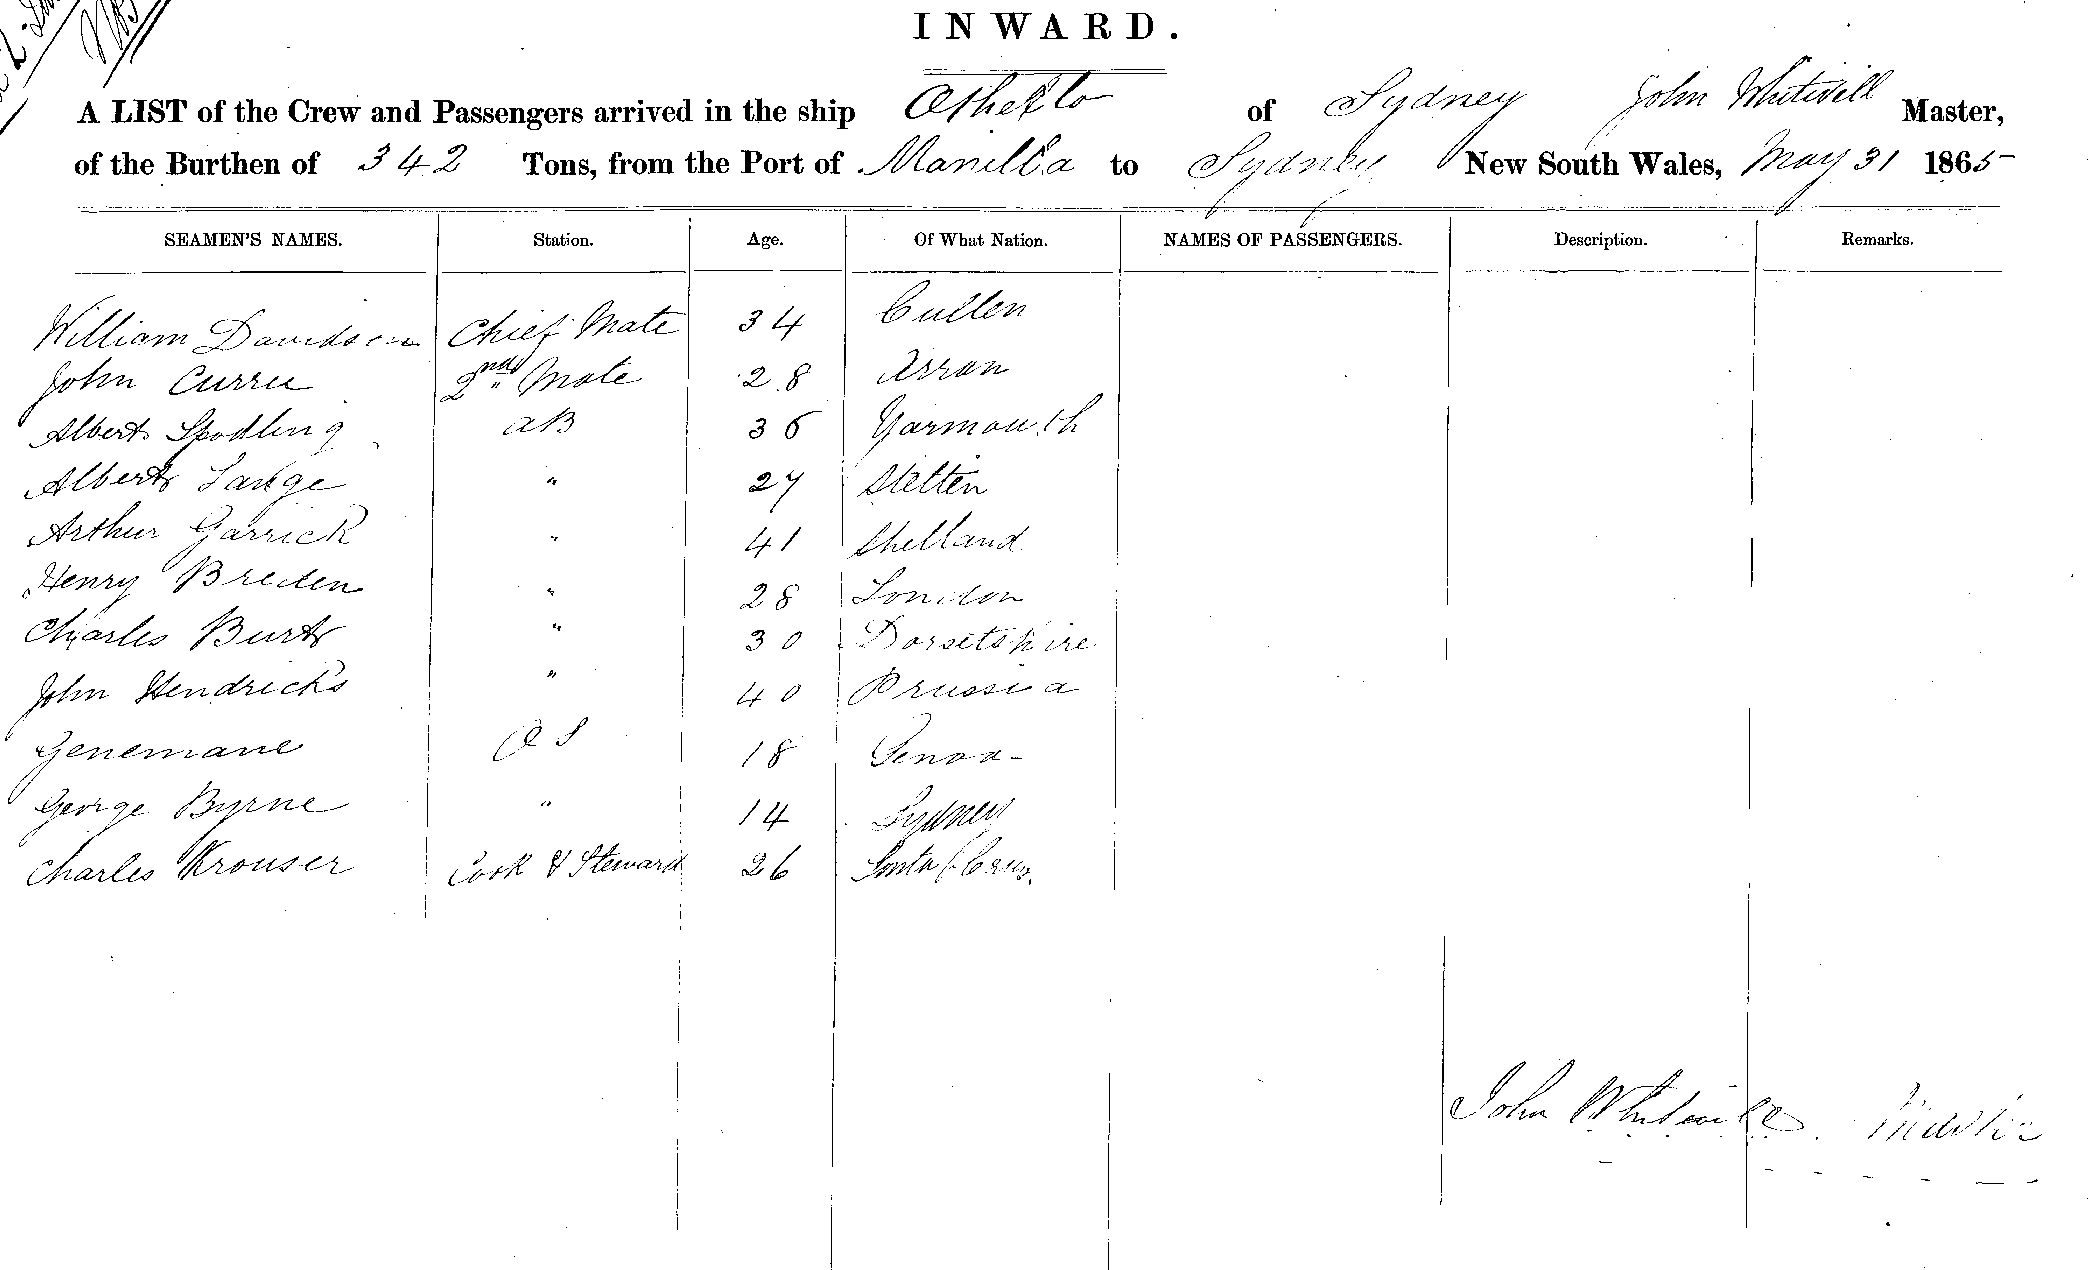 INWARD.
A LIST of the Crew and Passengers arrived in the ship Othello of Sydney John Whitwill Master,
of the Burthen of 342 Tons, from the Port of Manilla to Sydney New South Wales, May 31 1865
SEAMEN'S NAMES. Station. Age. Of What Nation. NAMES OF PASSENGERS. Description. Remarks.
William Davidson Chief Mate 34 Cullen
John Currie 2nd Mate 28 Arran
Albert Spodling AB 36 Yarmouth
Albert Lange " 27 Stettin
Arthur Garrick " 41 Shetland
Henry Breden " 28 London
Charles Burt " 30 Dorsetshire
John Hendricks " 40 Prussia
Genemane OS 18 Genoa
George Byrne " 14 Sydney
Charles Krouser Cook & Steward 26 Santa Cruz.
John Whitwill Master